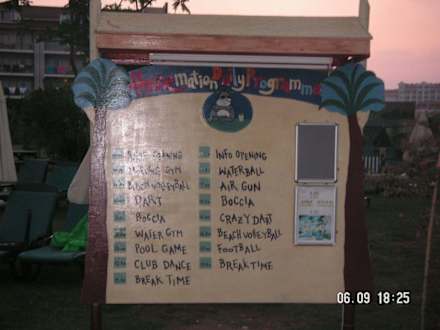 Animation Daily Programme
INFO OPENING
MORNING GYM
BEACH VOLLEYBALL
DART
BOCCIA
WATER GYM
POOL GAME
CLUB DANCE
BREAK TIME
INFO OPENING
WATERBALL
AIR GUN
BOCCIA
CRAZY DART
BEACH VOLLEYBALL
FOOTBALL
BREAK TIME
06.09 18:25